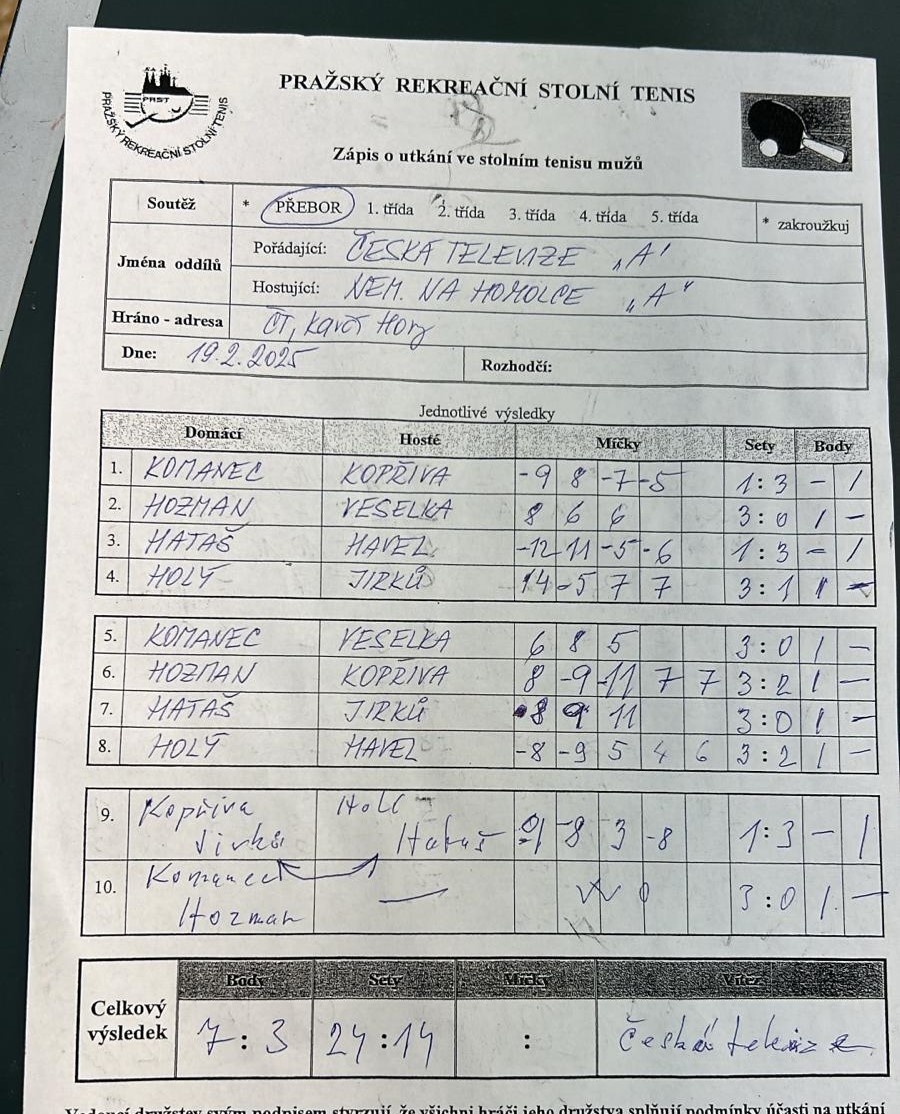 PRST
PRAŽSKÝ REKREAČNÍ STOLNÍ TENIS
PRAŽSKÝ REKREAČNÍ STOLNÍ TENIS
Zápis o utkání ve stolním tenisu mužů
Soutěž * PŘEBOR 1. třída 2. třída 3. třída 4. třída 5. třída * zakroužkuj
Jména oddílů
Pořádající: ČESKA TELEVIZE „A"
Hostující: NEM. NA HOMOLCE „A"
Hráno - adresa ČT, Kavčí Hory
Dne: 19.2.2025 Rozhodčí:
Jednotlivé výsledky
Domácí Hosté Míčky Sety Body
1. KOMANEC KOPŘIVA -9 8 -7 -5 1:3 - 1
2. HOZMAN VESELKA 8 6 6 3:0 1 -
3. HATAŠ HAVEL -12 11 -5 -6 1:3 - 1
4. HOLÝ JIRKŮ 14 -5 7 7 3:1 1 -
5. KOMANEC VESELKA 6 8 5 3:0 1 -
6. HOZMAN KOPŘIVA 8 -9 -11 7 7 3:2 1 -
7. HATAŠ JIRKŮ 8 9 11 3:0 1 -
8. HOLÝ HAVEL -8 -9 5 4 6 3:2 1 -
9. Kopřiva Jirků Holý Hataš -8 3 -8 1:3 - 1
10. Komanec Hozman — W 0 3:0 1 -
Celkový výsledek
Body Sety Míčky Vítěz
7:3 24:14 : Česká televize
Vedoucí družstev svým podpisem stvrzují, že všichni hráči jeho družstva splňují podmínky účasti na utkání